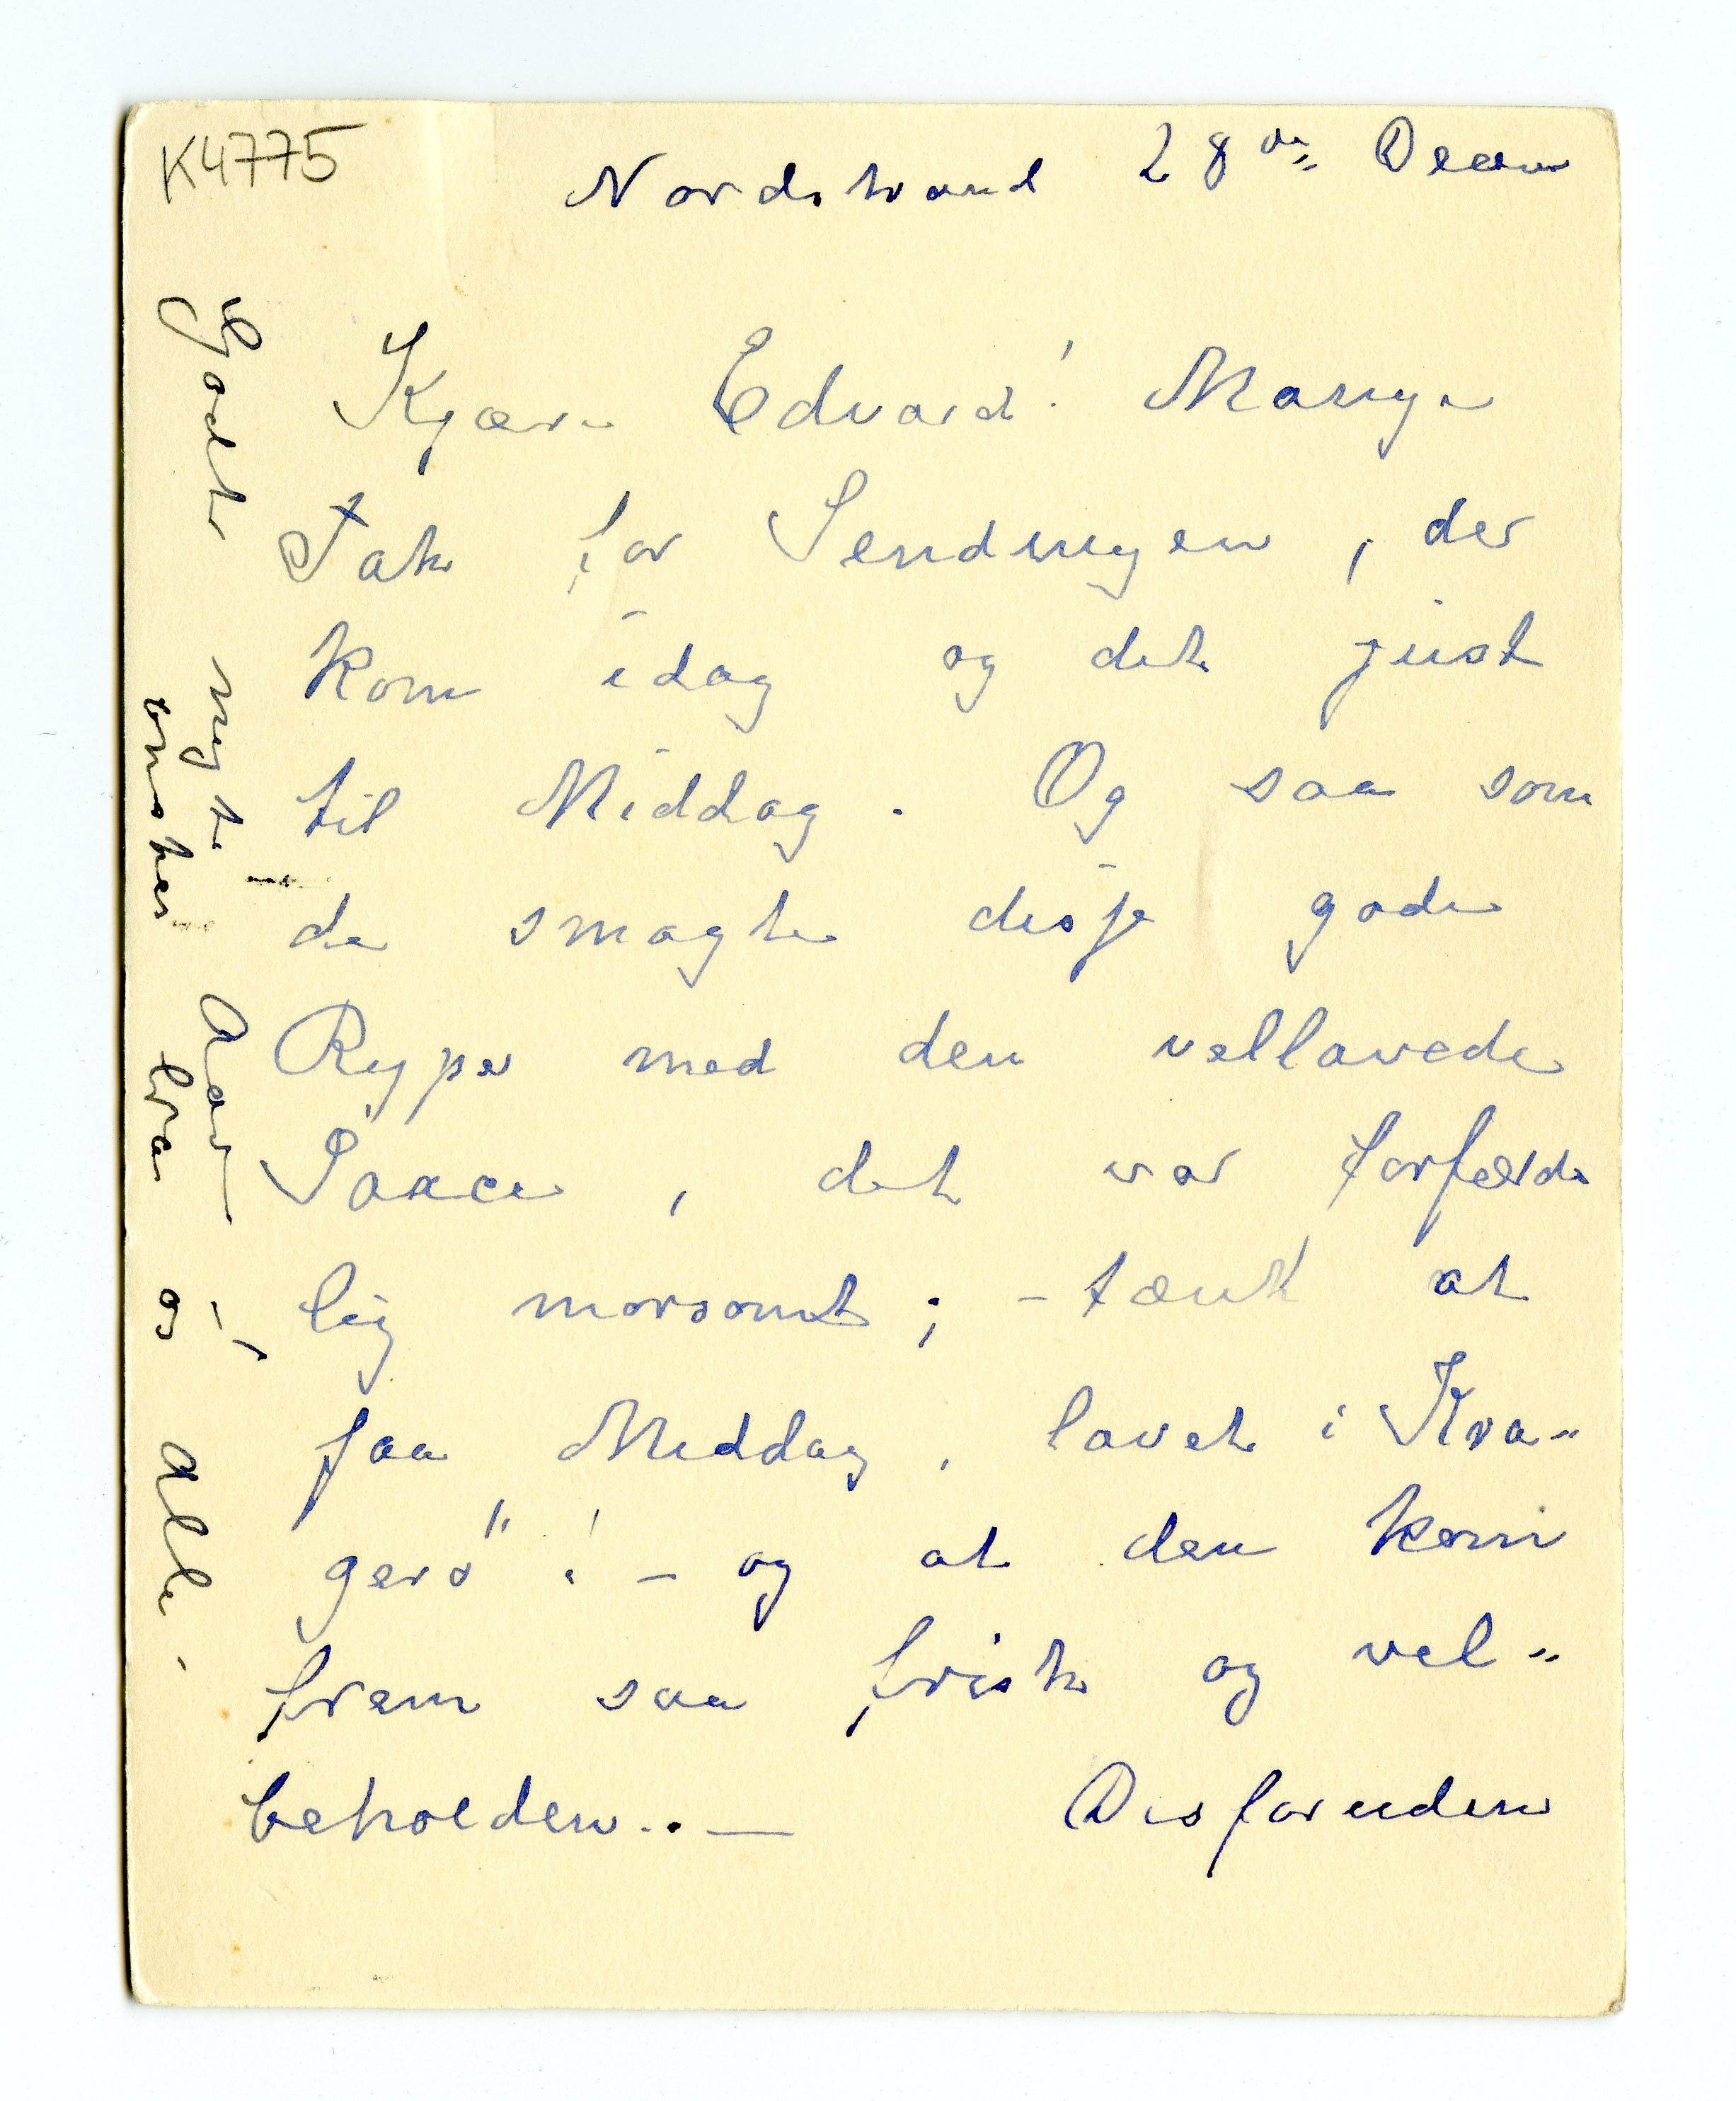 K4775
Nordstrand 28de Decem
Kjære Edvard! Mange
Tak for Sendingen, der
kom idag og det just
til Middag. Og saa som
de smagte disse gode
Ryper med den vellavede
Sauce, det var forfærde
lig morsomt; – tænk at
faa Middag, lavet i Kra-
gerö"! – og at den kom
frem saa frisk og vel-
beholden.. — Desforuden
Godt nyt Aar –,
önskes Eva og Alle. –